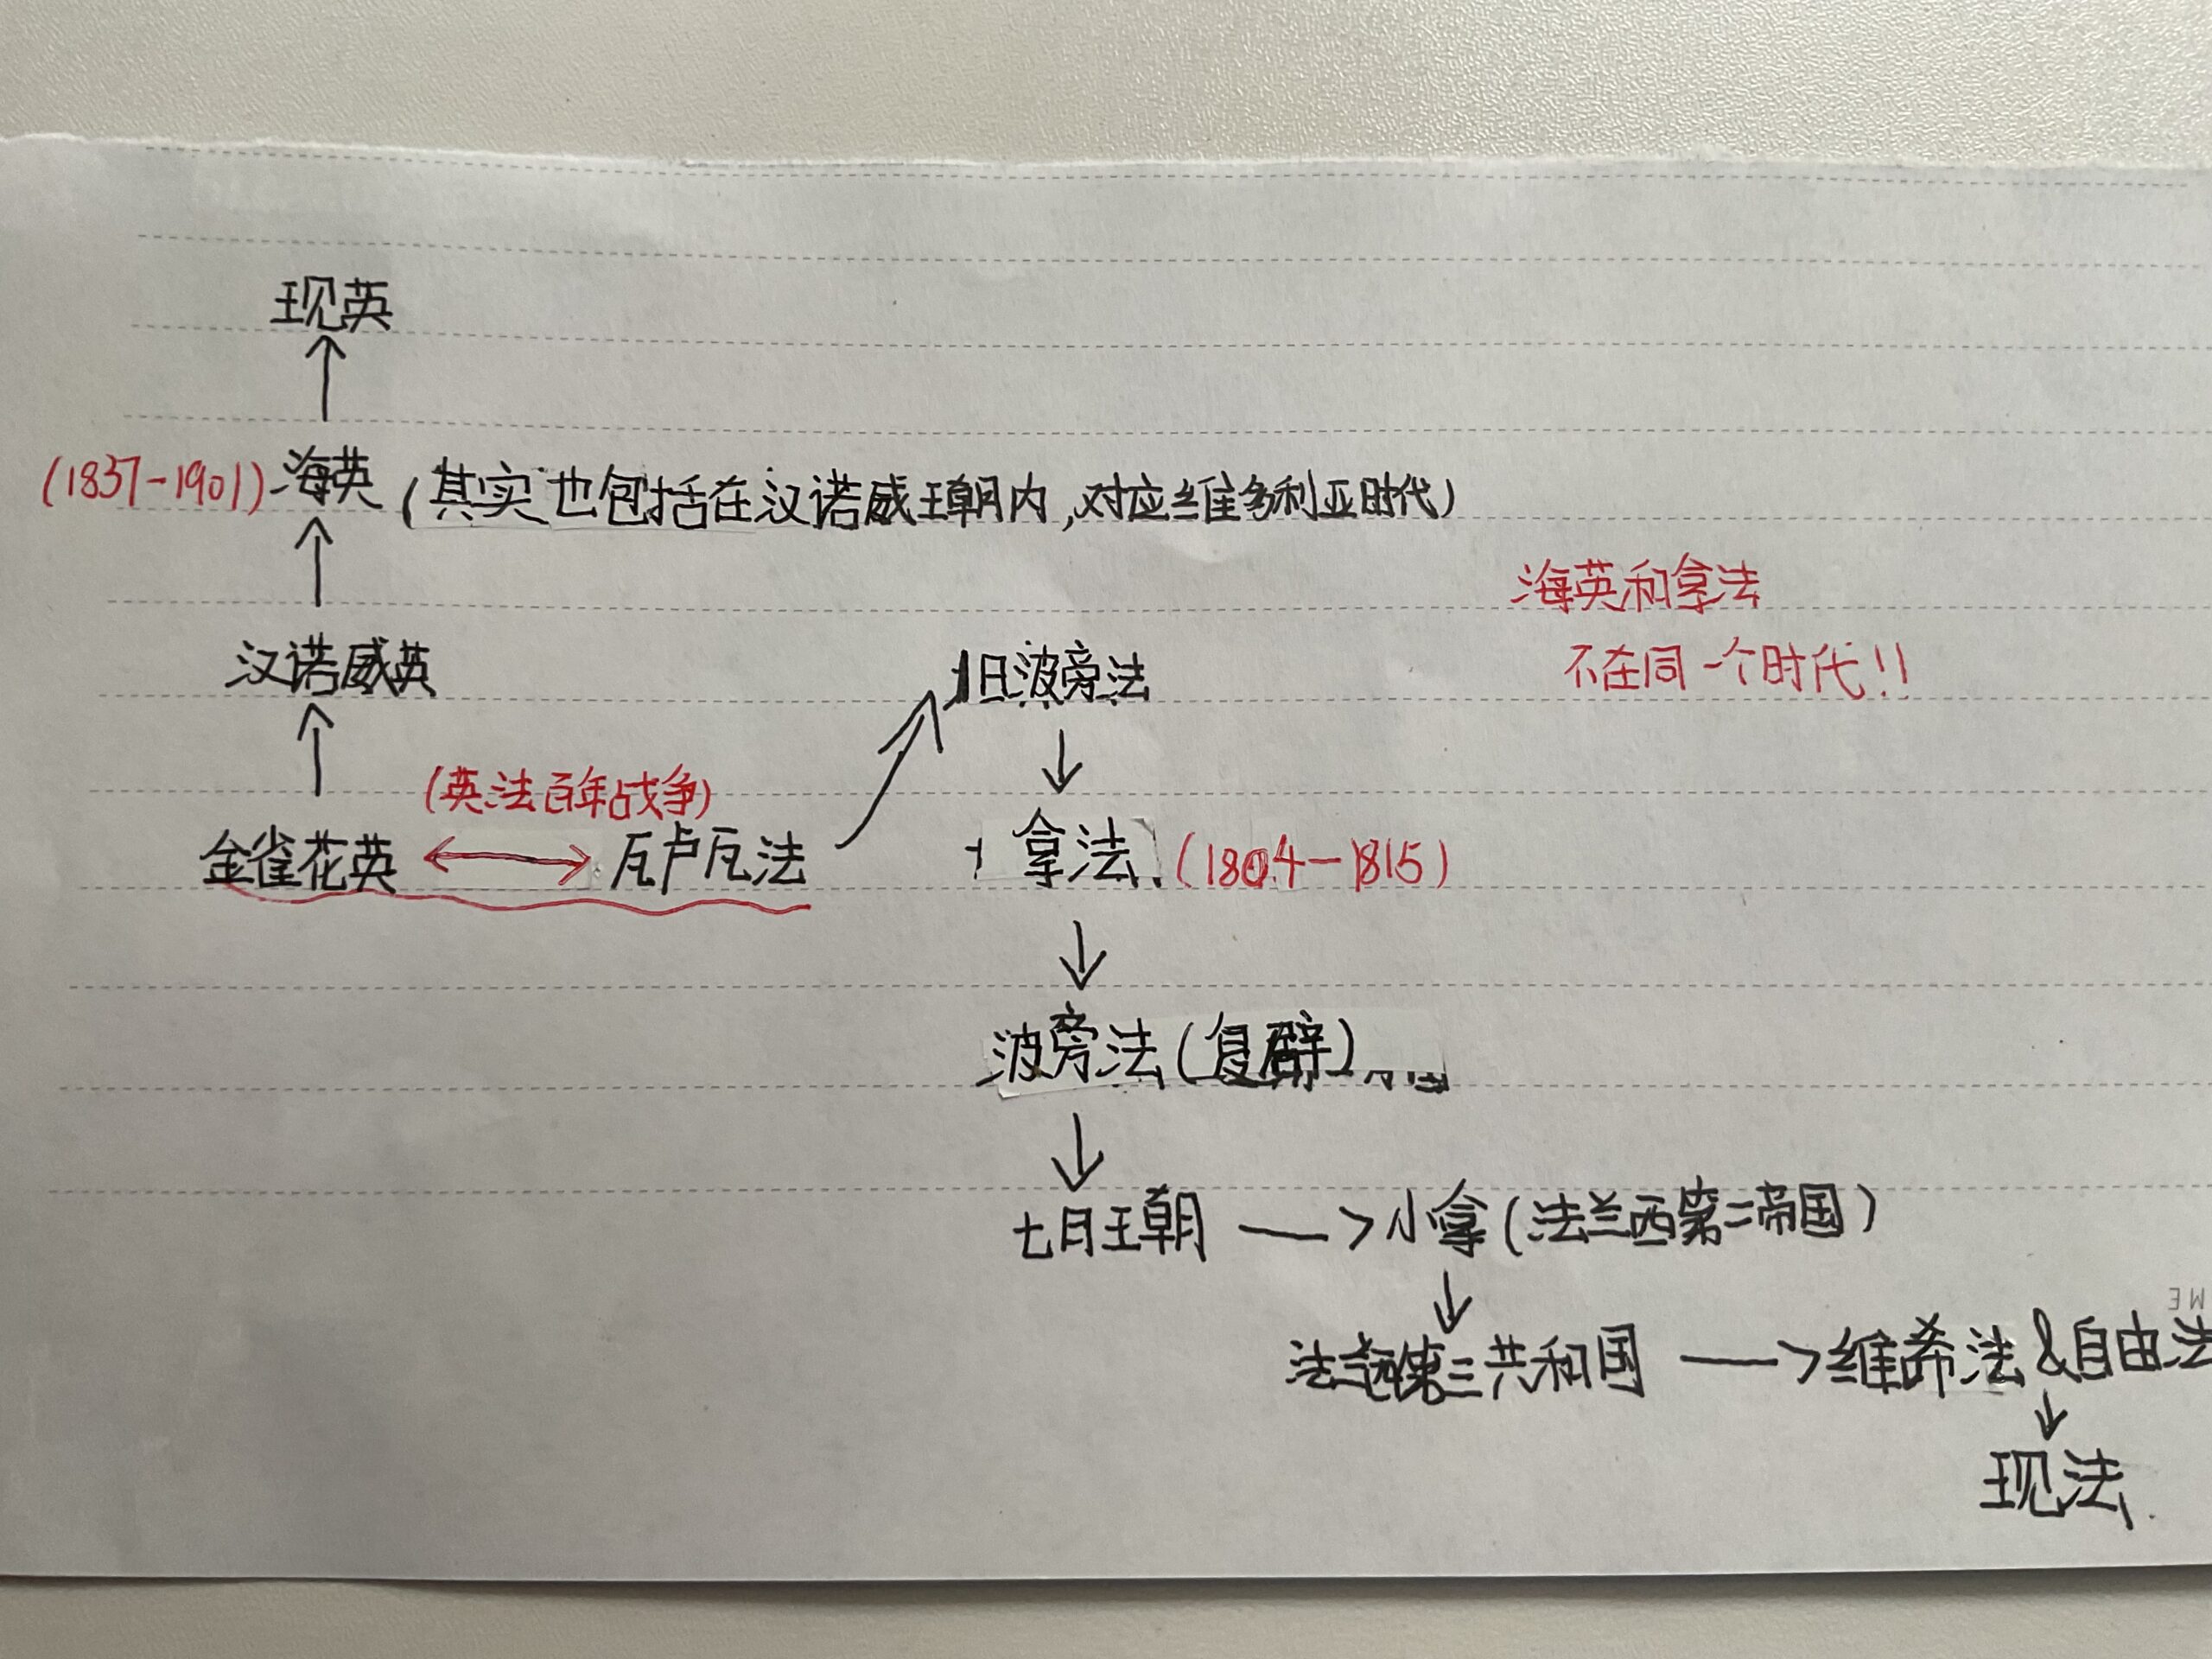 现英
(1837-1901) 海英 (其实也包括在汉诺威王朝内,对应维多利亚时代)
海英和拿法
不在同一个时代!!
汉诺威英
旧波旁法
(英法百年战争)
金雀花英 瓦卢瓦法
拿法 (1804-1815)
波旁法(复辟)
七月王朝 小拿(法兰西第二帝国)
法兰西第三共和国 维希法&自由法
现法